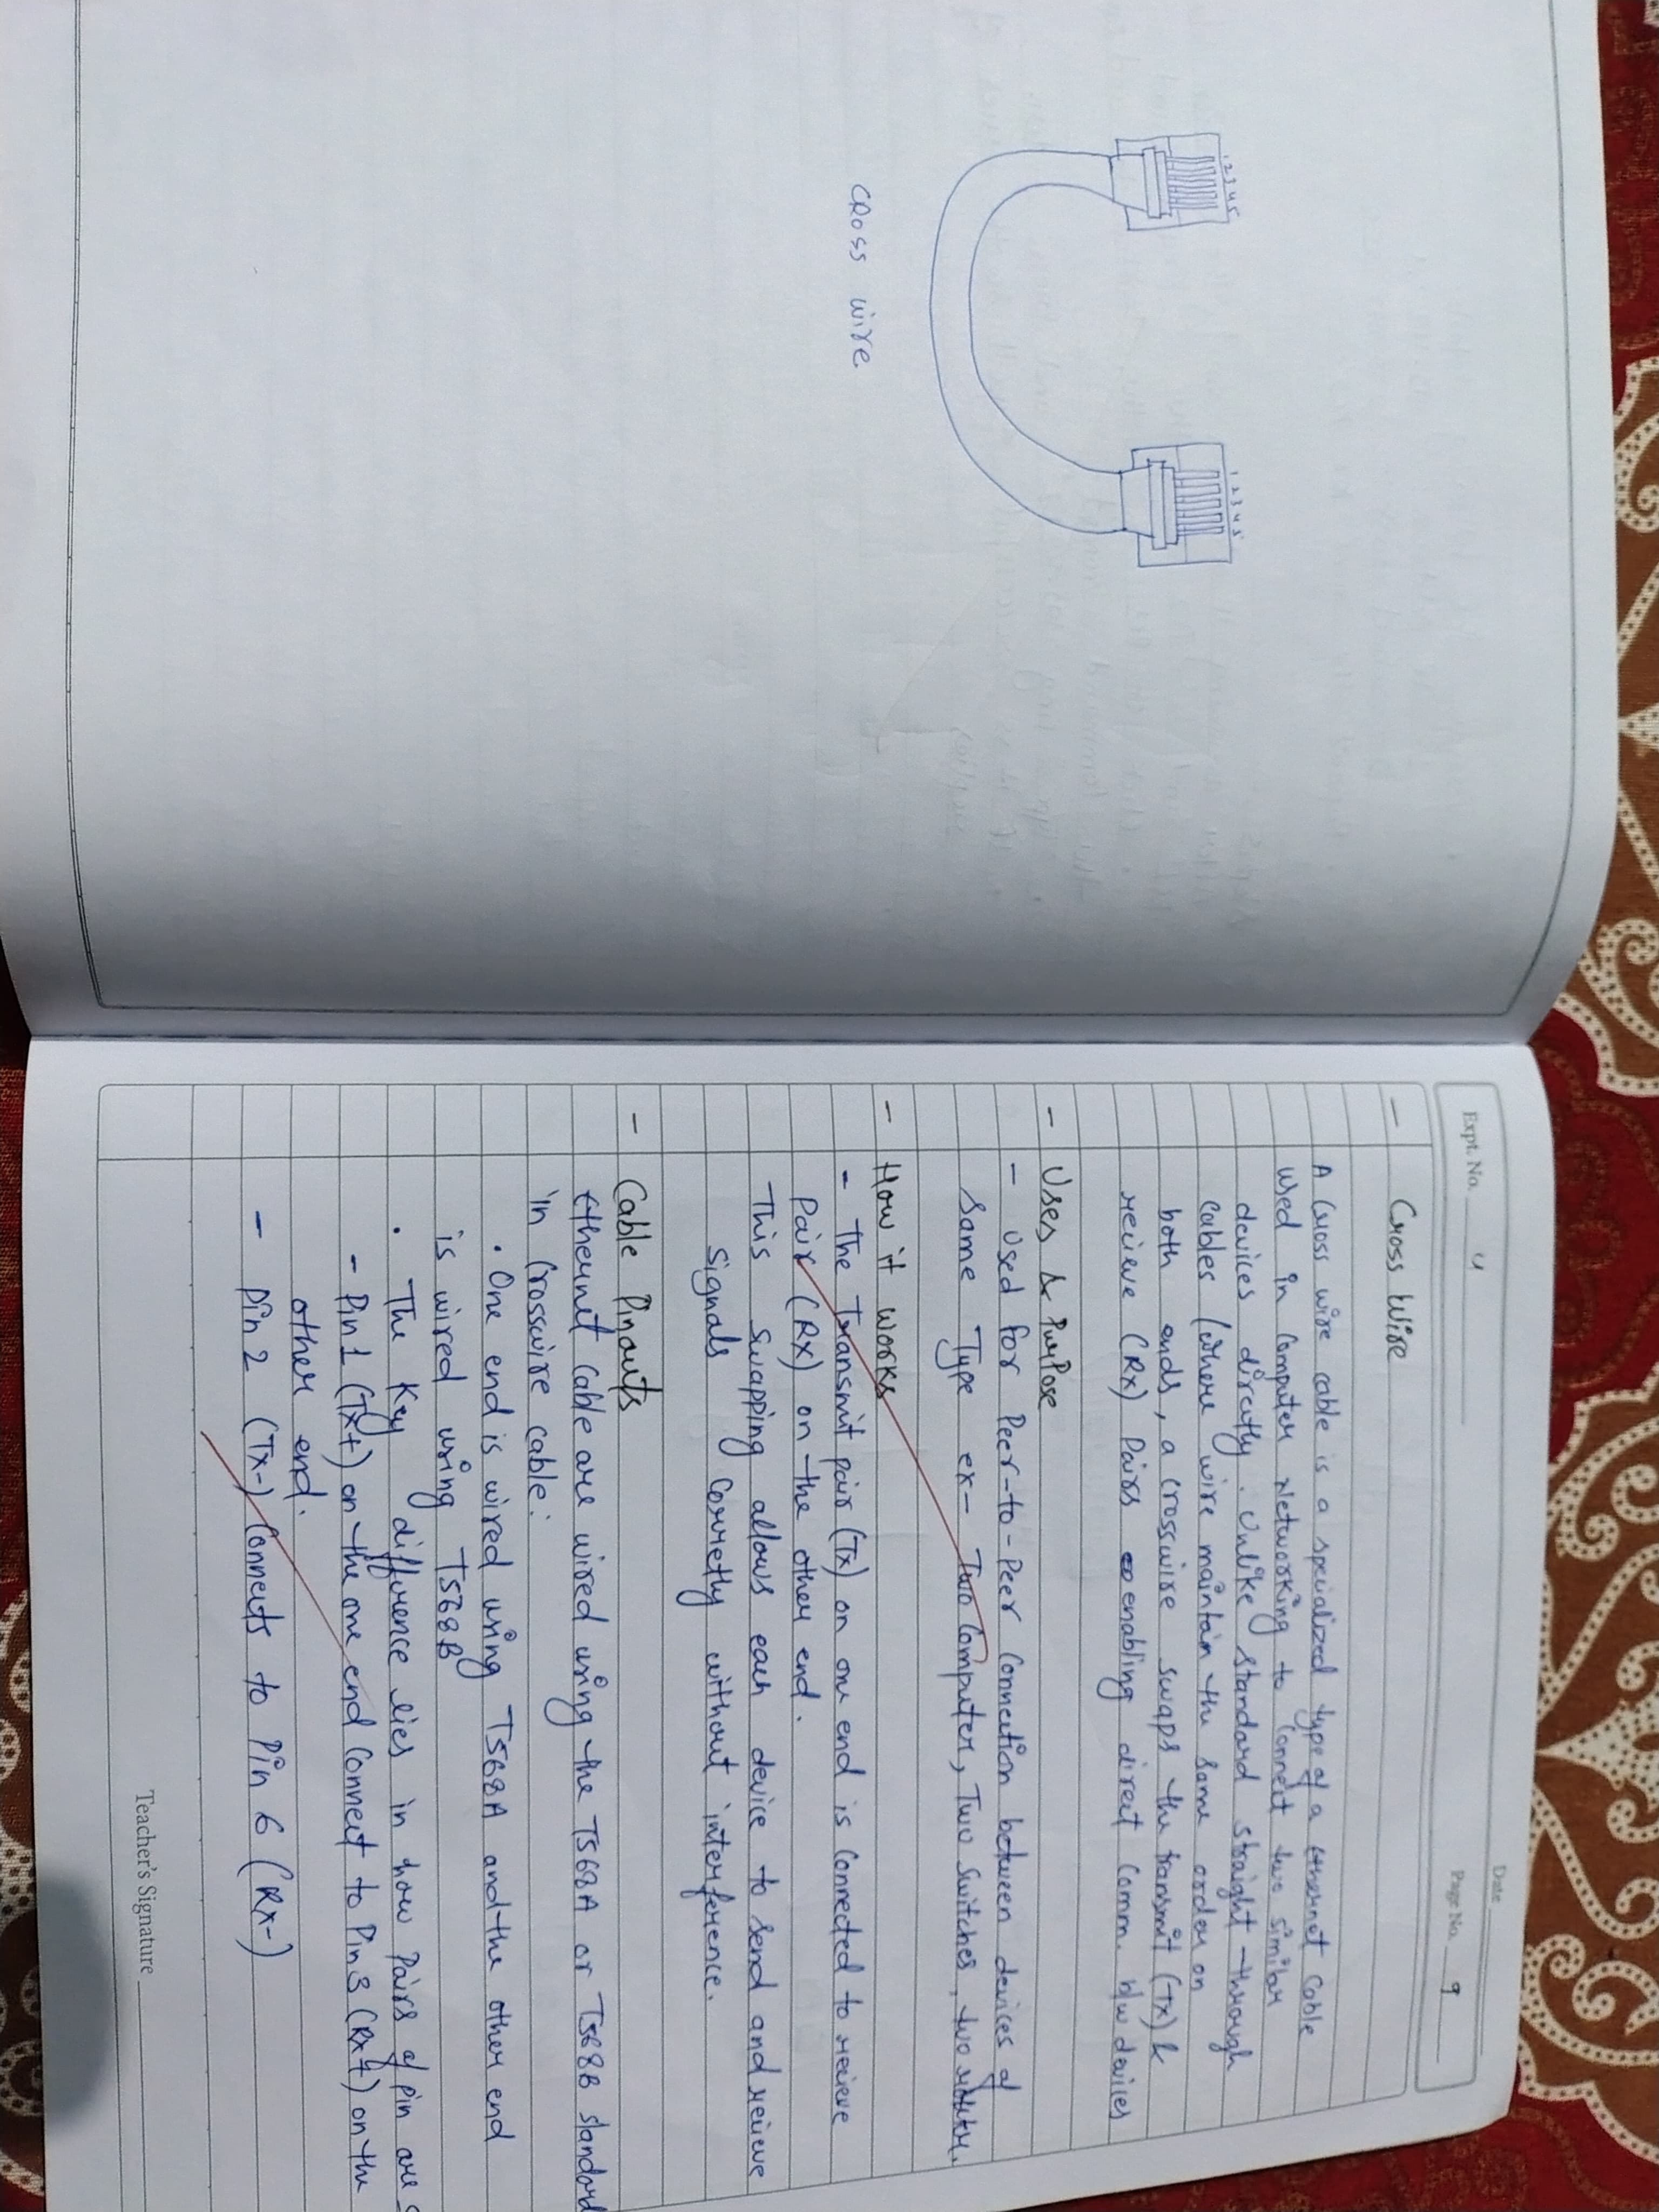 1 2 3 4 5
1 2 3 4 5
CROSS wire
Date
Expt. No. 4
Page No. 9
- Cross Wire
A Cross wire cable is a specialized type of a Ethernet Cable
used in Computer Networking to Connect two similar
devices directly. Unlike standard straight-through
cables (where wire maintain the same order on
both ends, a crosswire swaps the transmit (Tx) &
recieve (Rx) Pairs enabling direct Comm. b/w devices
- Uses & Purpose
- Used for Peer-to-Peer Connection between devices of
Same Type ex- Two Computer, Two Switches, two router.
- How it works
- The Transmit pair (Tx) on one end is Connected to recieve
Pair (Rx) on the other end.
This Swapping allows each device to send and recieve
signals Corretly without interference.
- Cable Pinouts
Ethernet Cable are wired using the T568A or T568B standard
in Crosswire cable:
• One end is wired using T568A and the other end
is wired using T568B
• The Key difference lies in how Pairs of pin are
- Pin 1 (Tx+) on the one end Connect to Pin 3 (Rx+) on the
other end.
- Pin 2 (Tx-) Connects to Pin 6 (Rx-)
Teacher's Signature